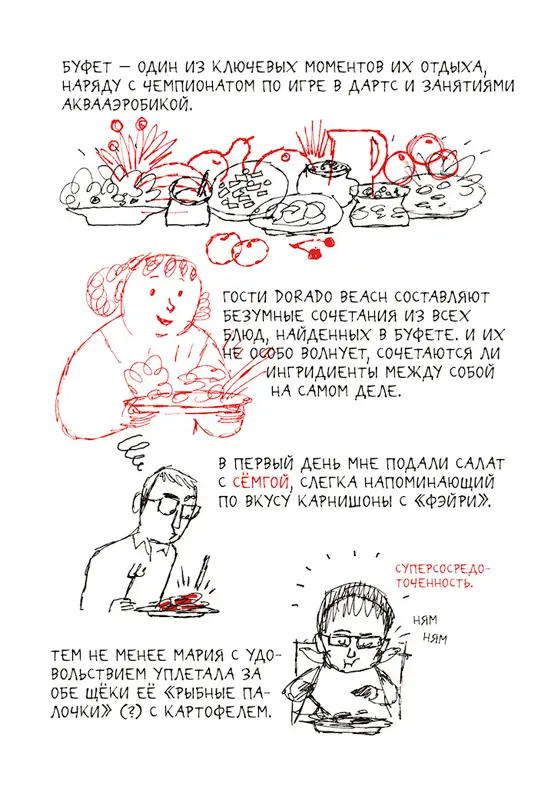 БУФЕТ – ОДИН ИЗ КЛЮЧЕВЫХ МОМЕНТОВ ИХ ОТДЫХА,
НАРЯДУ С ЧЕМПИОНАТОМ ПО ИГРЕ В ДАРТС И ЗАНЯТИЯМИ
АКВААЭРОБИКОЙ.
ГОСТИ DORADO BEACH СОСТАВЛЯЮТ
БЕЗУМНЫЕ СОЧЕТАНИЯ ИЗ ВСЕХ
БЛЮД, НАЙДЕННЫХ В БУФЕТЕ. И ИХ
НЕ ОСОБО ВОЛНУЕТ, СОЧЕТАЮТСЯ ЛИ
ИНГРИДИЕНТЫ МЕЖДУ СОБОЙ
НА САМОМ ДЕЛЕ.
В ПЕРВЫЙ ДЕНЬ МНЕ ПОДАЛИ САЛАТ
С СЁМГОЙ, СЛЕГКА НАПОМИНАЮЩИЙ
ПО ВКУСУ КАРНИШОНЫ С «ФЭЙРИ».
СУПЕРСОСРЕДО-
ТОЧЕННОСТЬ.
НЯМ
НЯМ
ТЕМ НЕ МЕНЕЕ МАРИЯ С УДО-
ВОЛЬСТВИЕМ УПЛЕТАЛА ЗА
ОБЕ ЩЁКИ ЕЁ «РЫБНЫЕ ПА-
ЛОЧКИ» (?) С КАРТОФЕЛЕМ.